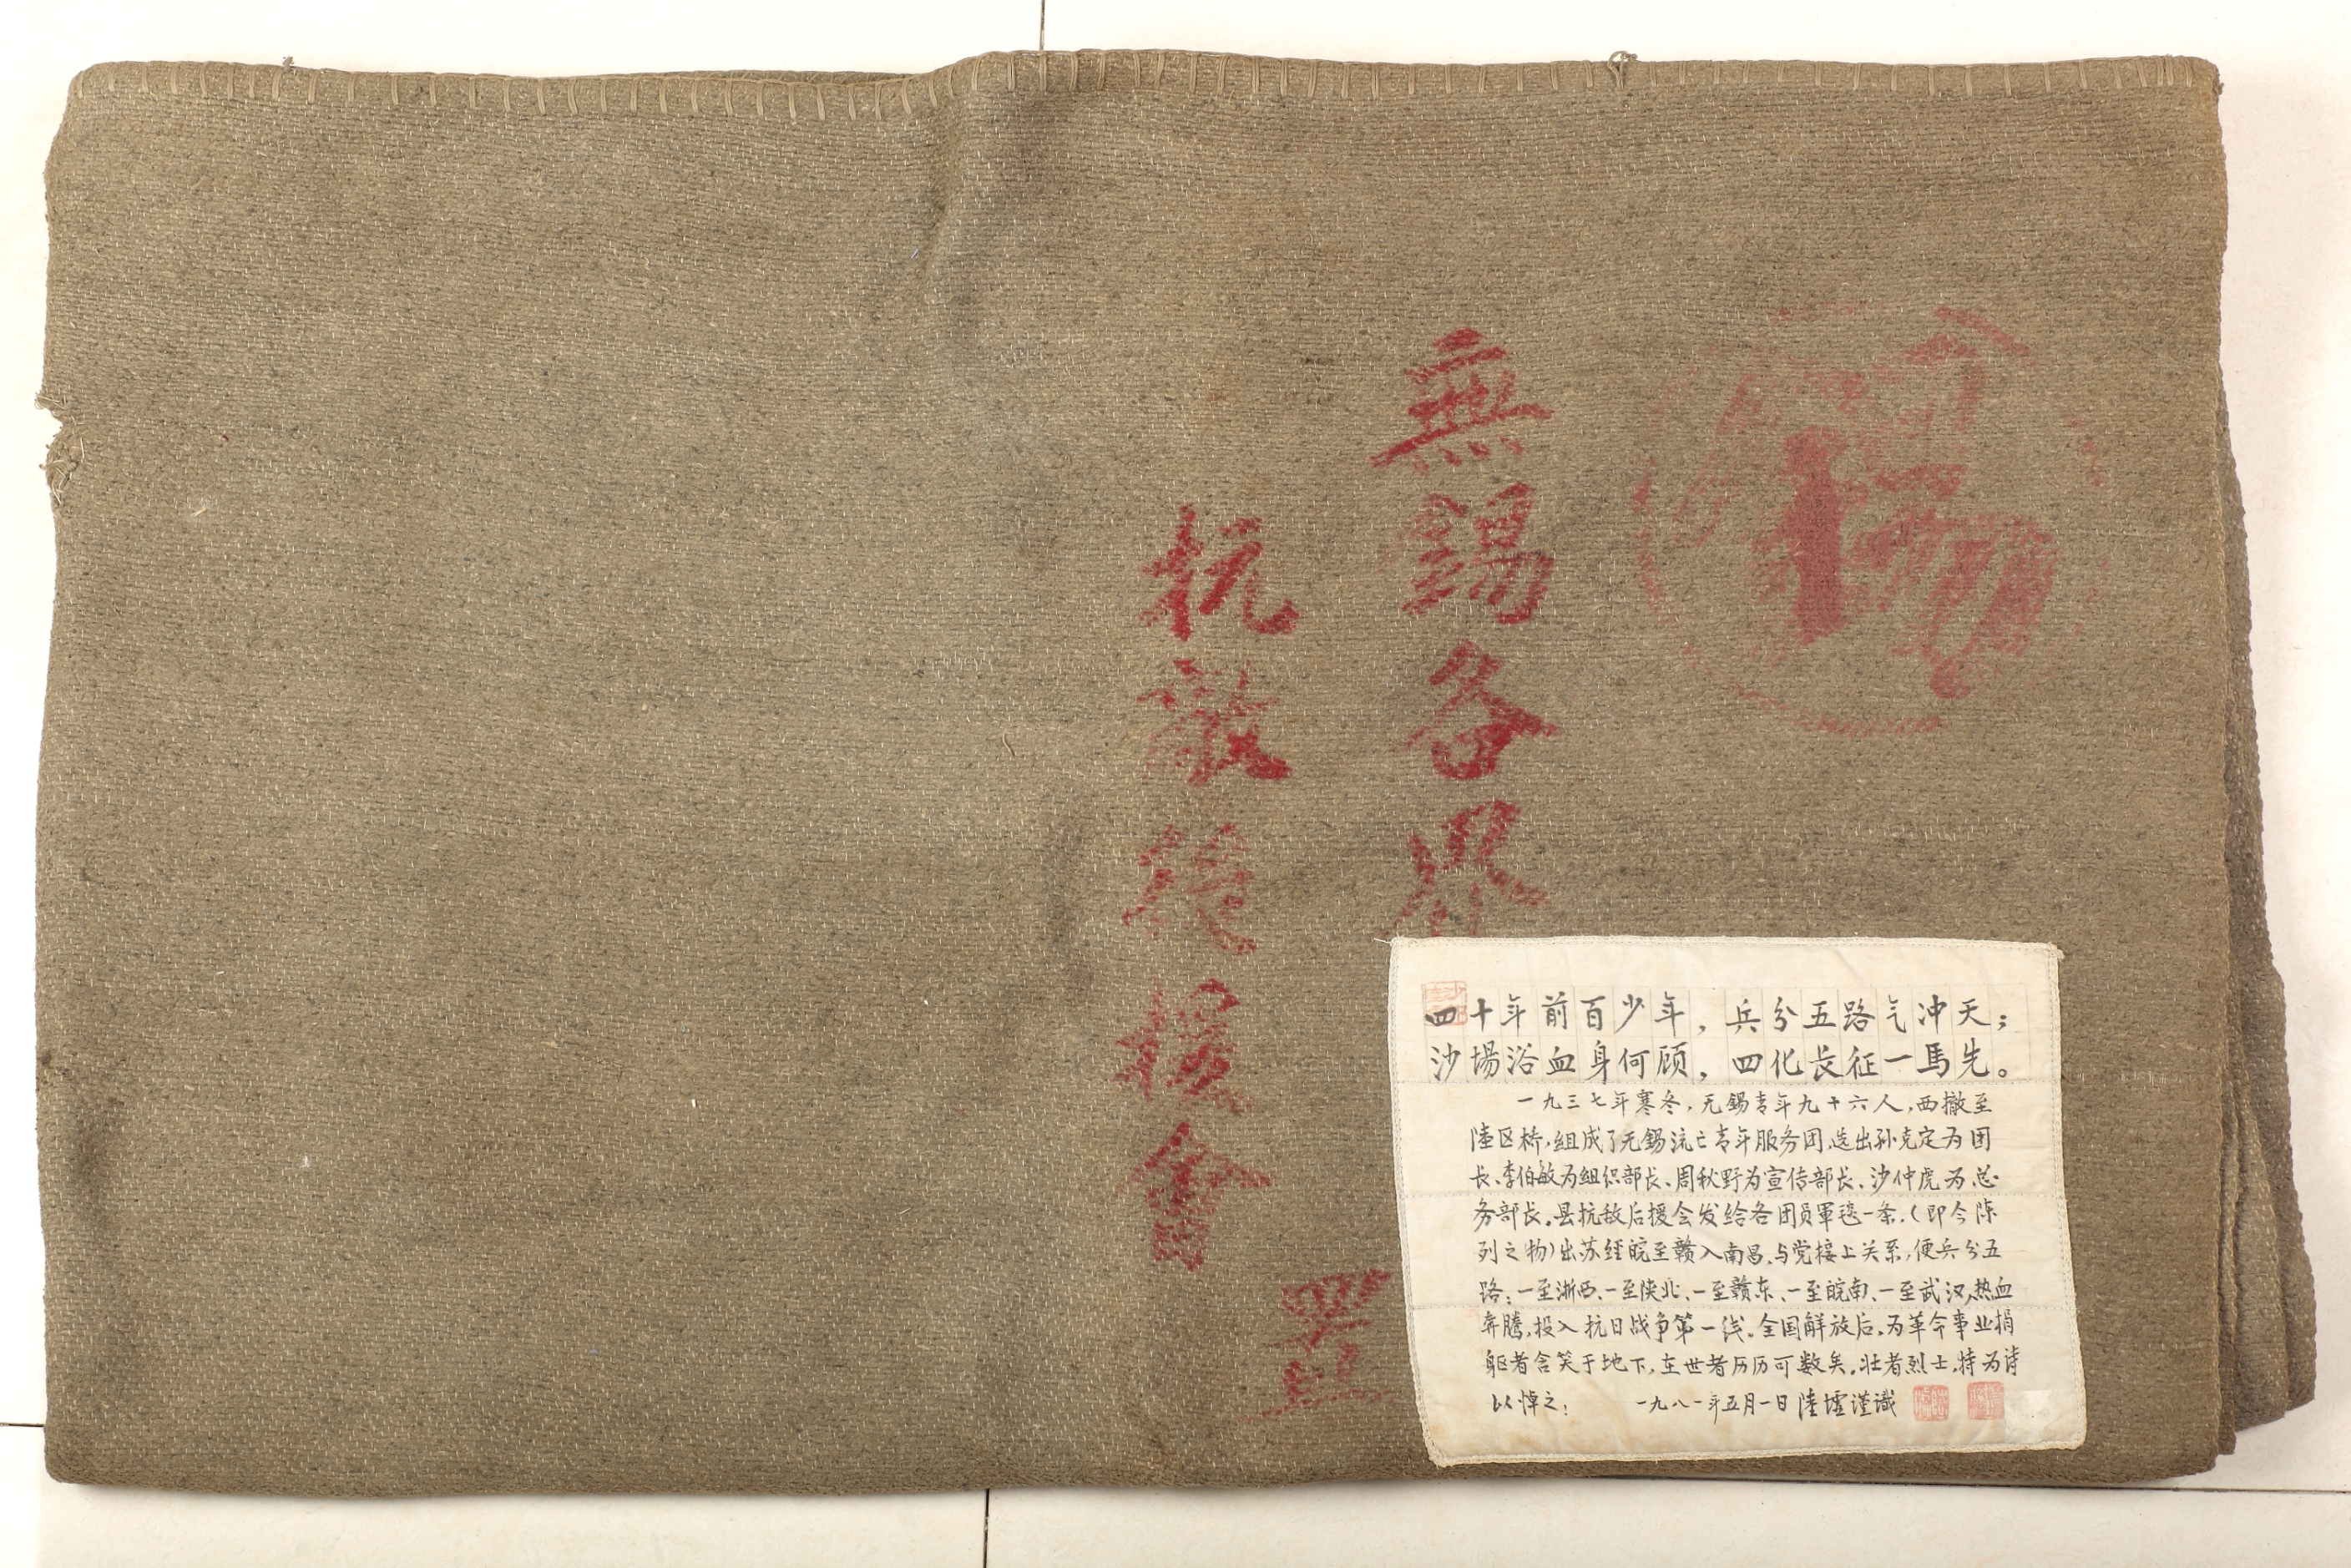 無錫各界
抗敵後援會
四十年前百少年，兵分五路气冲天；
沙場浴血身何顾，四化长征一馬先。
一九三七年寒冬，无錫青年九十六人，西撤至
陸区桥，组成了无錫流亡青年服务团，选出孙克定为团
长、李伯敏为组织部长、周秋野为宣传部长、沙仲虎为总
务部长。县抗敌后援会发给各团员軍毯一条，（即今陈
列之物）出苏经皖至赣入南昌，与党接上关系，便兵分五
路：一至浙西、一至陕北、一至赣东、一至皖南、一至武汉，热血
奔騰，投入抗日战争第一线。全国解放后，为革命事业捐
躯者含笑于地下，在世者历历可数矣。壮者烈士，特为诗
以悼之；
一九八一年五月一日 陸墟谨識